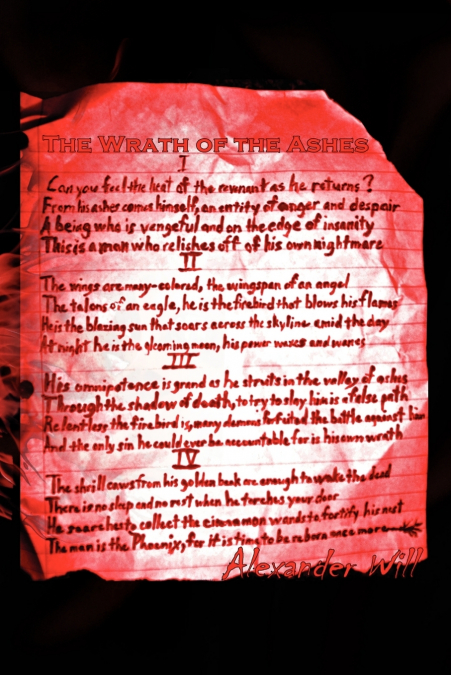 THE WRATH OF THE ASHES
I
Can you feel the heat of the revenant as he returns?
From his ashes comes himself, an entity of anger and despair
A being who is vengeful and on the edge of insanity
This is a man who relishes off of his own nightmare
II
The wings are many-colored, the wingspan of an angel
The talons of an eagle, he is the firebird that blows his flames
He is the blazing sun that soars across the skyline amid the day
At night he is the gleaming moon, his power waxes and wanes
III
His omnipotence is grand as he struts in the valley of ashes
Through the shadow of death, to try to slay him is a false path
Relentless the firebird is, many demons forfeited the battle against him
And the only sin he could ever be accountable for is his own wrath
IV
The shrill caws from his golden beak are enough to wake the dead
There is no sleep and no rest when he torches your door
He searches to collect the cinnamon wands to fortify his nest
The man is the Phoenix, for it is time to be reborn once more
Alexander Will